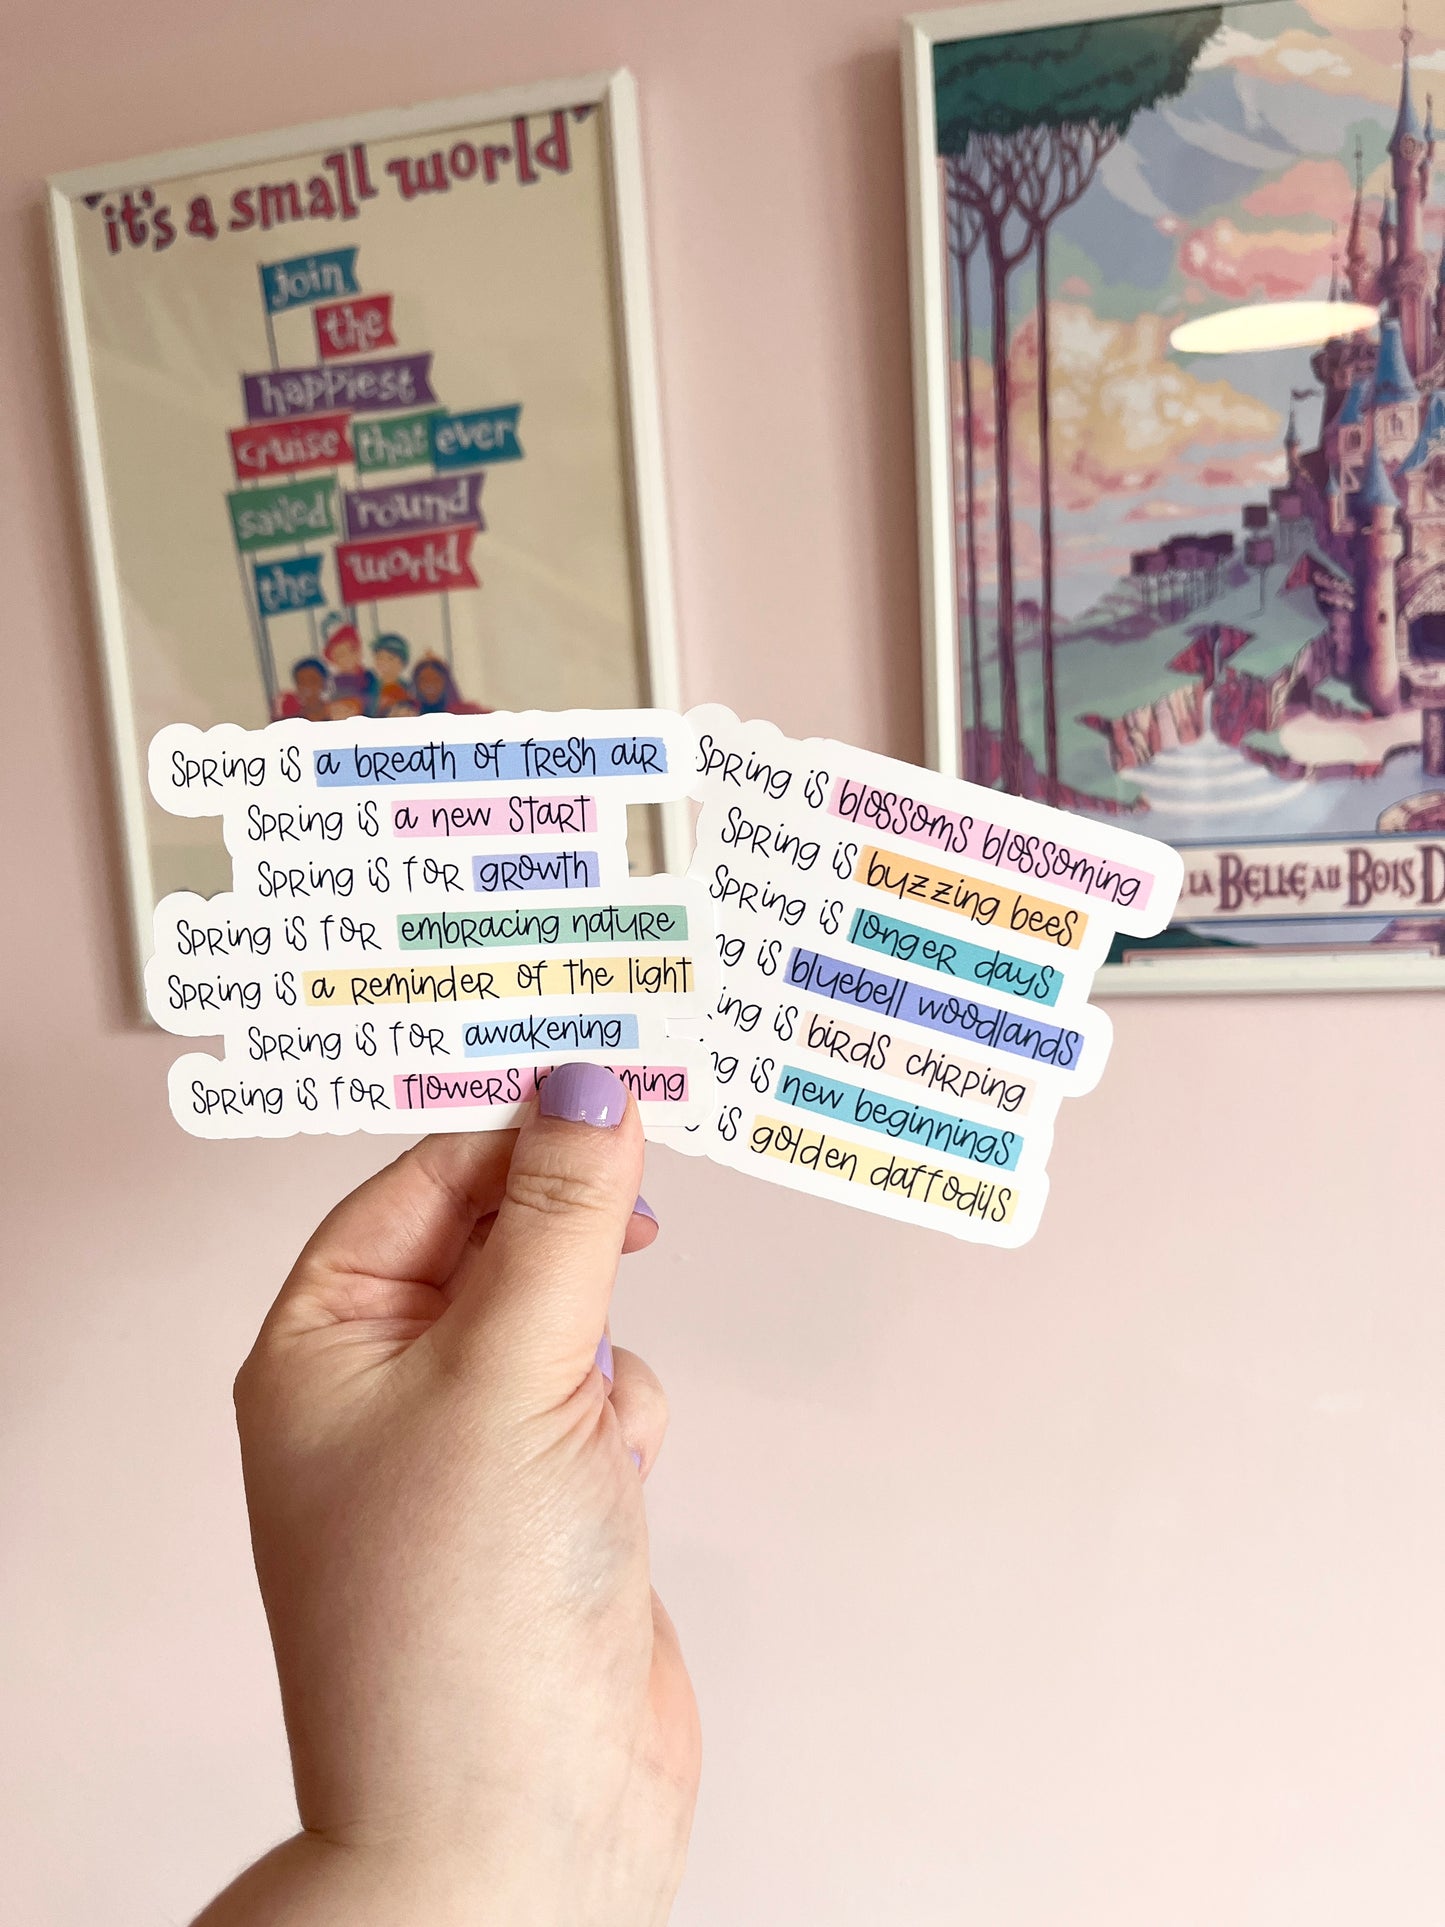 "it's a small world"
join
the
happiest
cruise that ever
sailed 'round
the world
LA BELLE AU BOIS
Spring is a breath of fresh air
Spring is a new start
Spring is for growth
Spring is for embracing nature
Spring is a reminder of the light
Spring is for awakening
Spring is for flowers
Spring is blossoms blossoming
Spring is buzzing bees
Spring is longer days
is bluebell woodlands
is birds chirping
is new beginnings
is golden daffodils